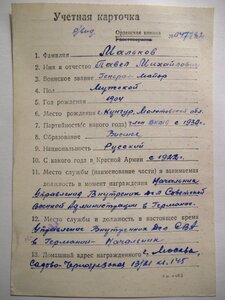 Учетная карточка
Орденская книжка
Удостоверение
1. Фамилия Мальков
2. Имя и отчество Павел Михайлович
3. Воинское звание Генерал майор
4. Пол Мужской
5. Год рождения 1904
6. Место рождения г. Кунгур, Молотовской обл.
7. Партийность (с какого года) член ВКП(б) с 1930г.
8. Образование Высшее
9. Национальность Русский
10. С какого года в Красной Армии с 1922г.
11. Место службы (наименование части) и занимаемая
должность в момент награждения Начальник
Управления Внутренних дел Советской
Военной Администрации в Германии.
12. Место службы и должность в настоящее время
Управление Внутренних Дел СВА
в Германии - Начальник
13. Домашний адрес награжденного г. Москва,
Садово-Черногрязская 13/21 кв. 145